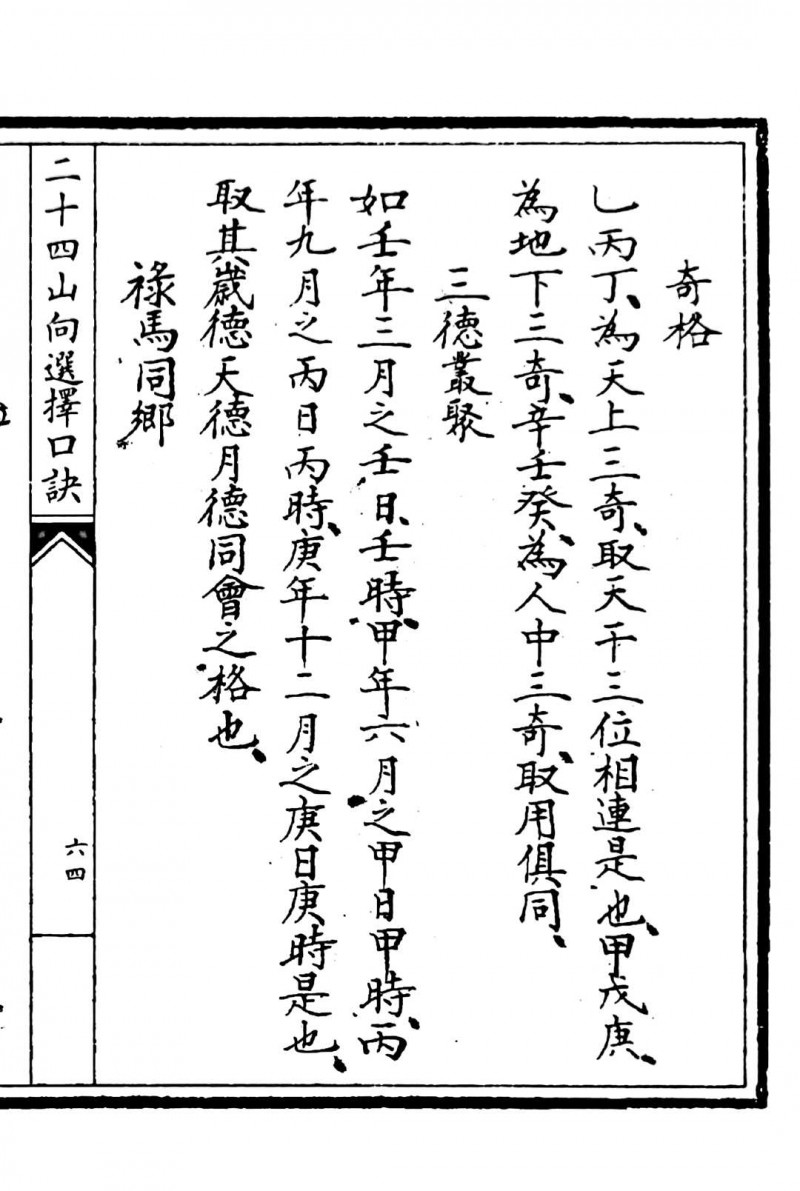 奇格
乙丙丁、為天上三奇、取天干三位相連是也、甲戊庚、
為地下三奇、辛壬癸、為人中三奇、取用俱同、
三德叢聚
如壬年三月之壬日、壬時、甲年六月之甲日甲時、丙
年九月之丙日丙時、庚年十二月之庚日庚時是也、
取其歲德天德月德同會之格也、
祿馬同鄉
二十四山向選擇口訣
六四